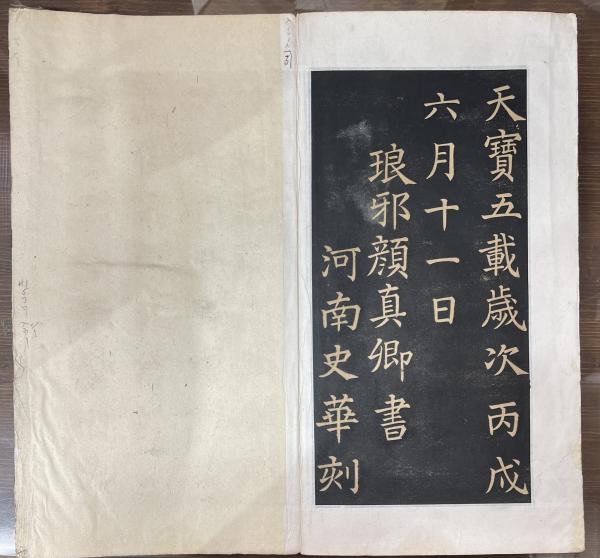 天寶五載歲次丙戌
六月十一日
琅邪顔真卿書
河南史華刻